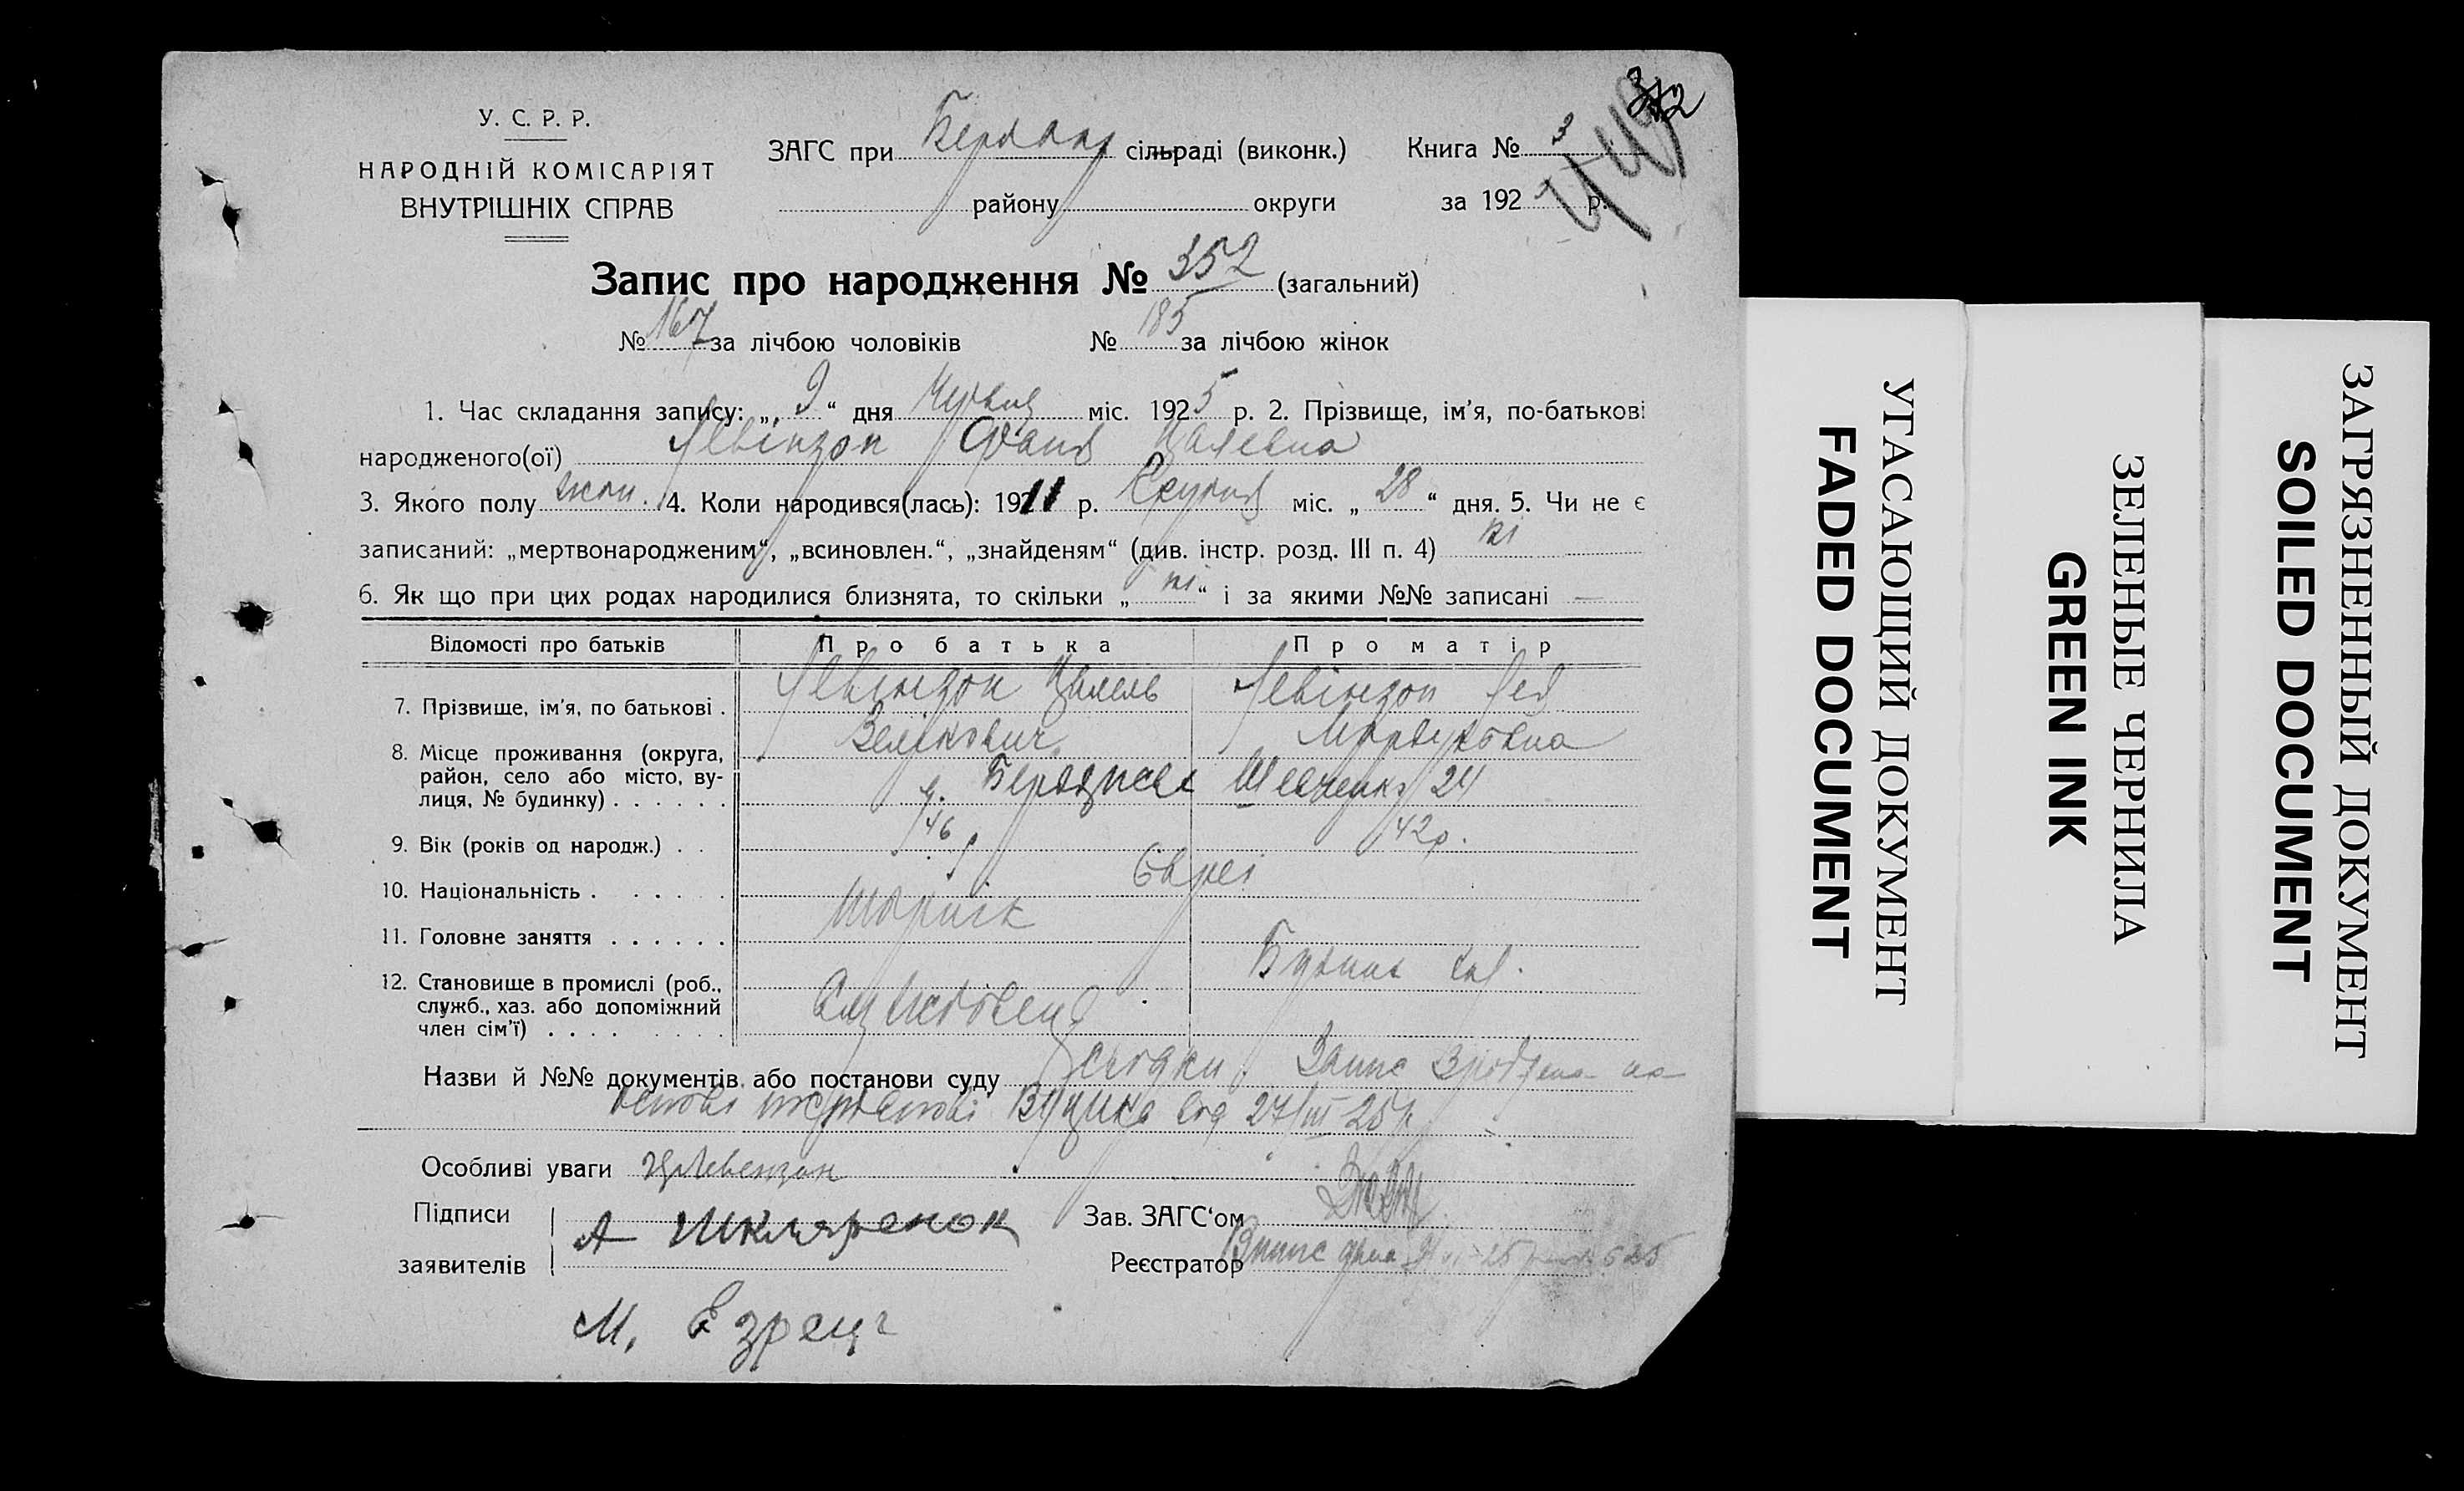 У. С. Р. Р.
НАРОДНІЙ КОМІСАРІЯТ
ВНУТРІШНІХ СПРАВ
ЗАГС при сільраді (виконк.) Книга № 3
району округи за 192 р.
Запис про народження № 352 (загальний)
№ 167 за лічбою чоловіків № 185 за лічбою жінок
1. Час складання запису: „ 9 “ дня Червня міс. 1925 р. 2. Прізвище, ім'я, по-батькові
народженого(ої) Левінзон Фаня Цалевна
3. Якого полу жін. 4. Коли народився(лась): 1911 р. міс. „ 28 “ дня. 5. Чи не є
записаний: „мертвонародженим“, „всиновлен.“, „знайденям“ (див. інстр. розд. III п. 4) ні
6. Як що при цих родах народилися близнята, то скільки „ ні “ і за якими №№ записані —
Відомості про батьків Про батька Про матір
7. Прізвище, ім'я, по батькові . Левінзон Цалель Зелікович Левінзон Лея
8. Місце проживання (округа,
район, село або місто, ву-
лиця, № будинку) . . . . . . Бердичев Шевченко 24
9. Вік (років од народж.) . . 46 р 42 р.
10. Національність . . . . . Євреї
11. Головне заняття . . . . . .
12. Становище в промислі (роб.,
служб., хаз. або допоміжний
член сім'ї) . . . .
Назви й №№ документів або постанови суду Свідки. Запис зроблено на
основі від 27/III 25 р.
Особливі уваги Ц Левензон
Підписи
заявителів
А Шкляренок
М. Езрец
Зав. ЗАГС'ом
Реєстратор
ЗАГРЯЗНЕННЫЙ ДОКУМЕНТ
SOILED DOCUMENT
ЗЕЛЕНЫЕ ЧЕРНИЛА
GREEN INK
УГАСАЮЩИЙ ДОКУМЕНТ
FADED DOCUMENT